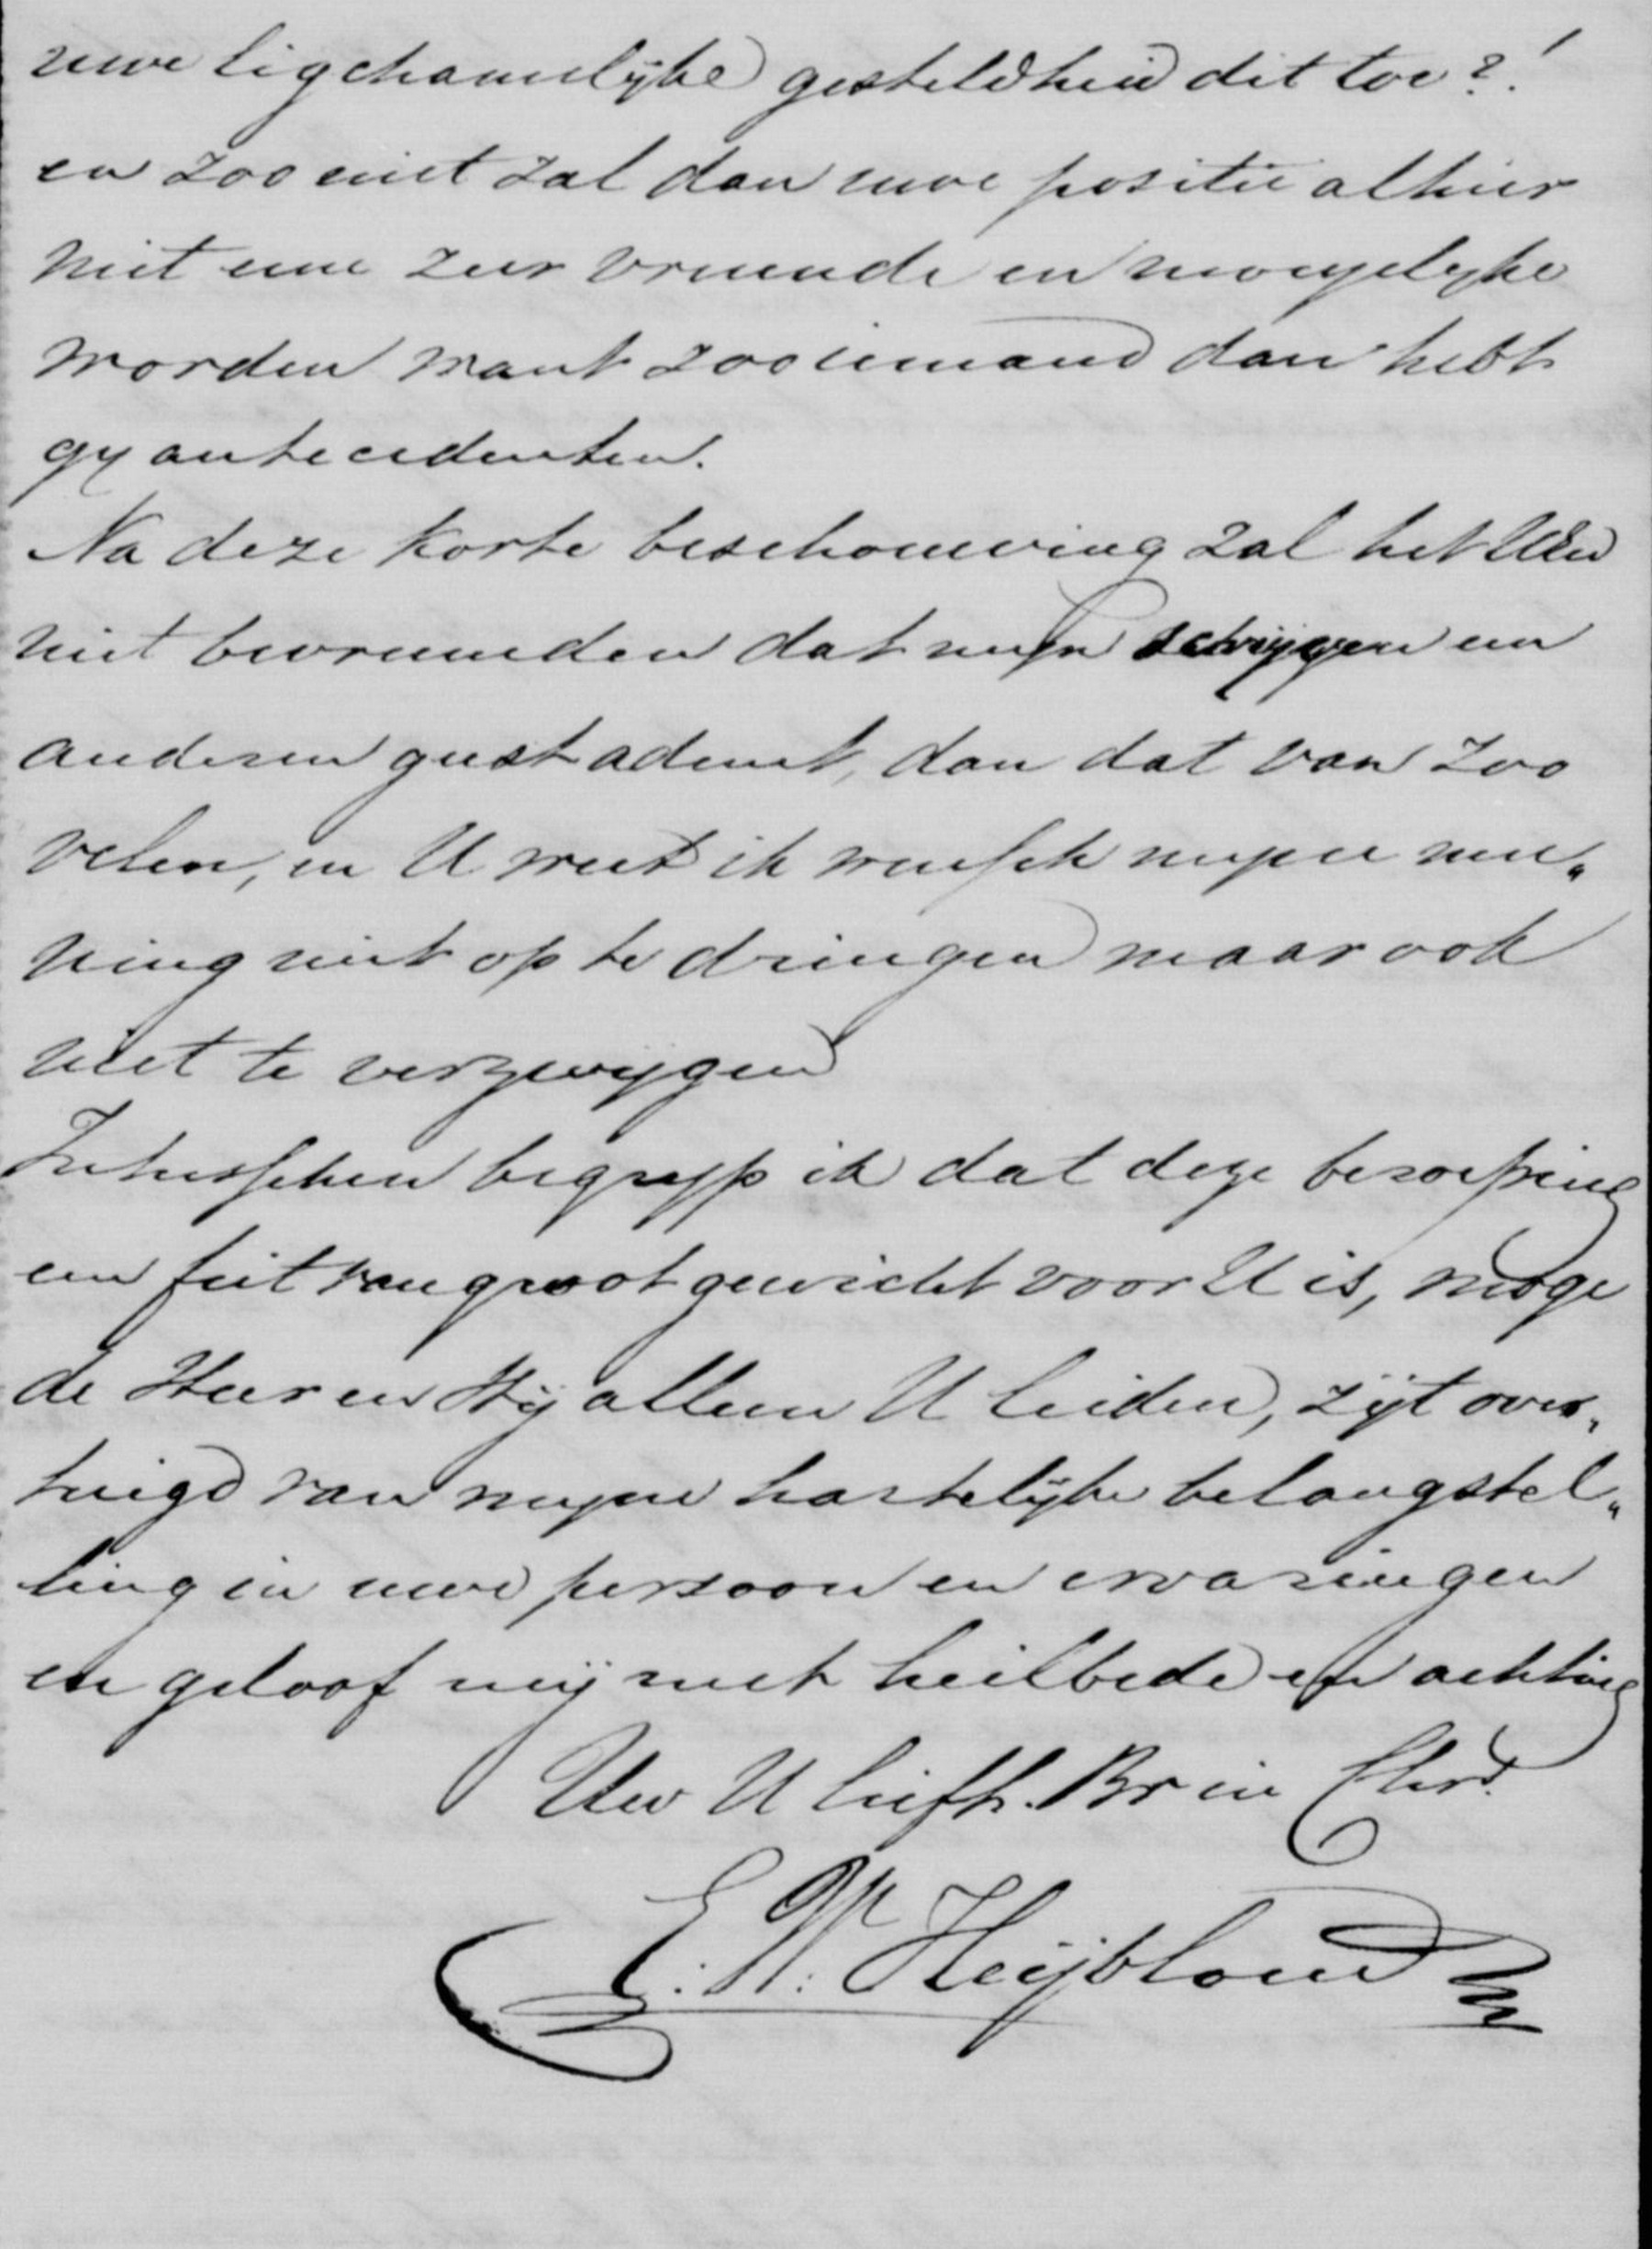 uwe ligchamelijke gesteldheid dit toe?!
en zoo niet zal dan uwe positie alhier
niet eene zeer vreemde en moeyelyke
worden want zoo iemand dan hebt
gy antecedenten.
Na deze korte beschouwing zal het UEw
niet bevreemden dat myn schrijven een
anderen geest ademt, dan dat van zoo
velen, en U weet ik wensch myne mee„
ning niet op te dringen maar ook
niet te verzwygen
Intusschen begryp ik dat deze beroeping
een feit van groot gewicht voor U is, moge
de Heer en Hij alleen U leiden, zijt over„
tuigd van myne hartelijke belangstel„
ling in uwe persoon en ervaringen
en geloof mij met heilbede en achting
Uw U liefh. Br in Chrs.
E. W. Heijblom